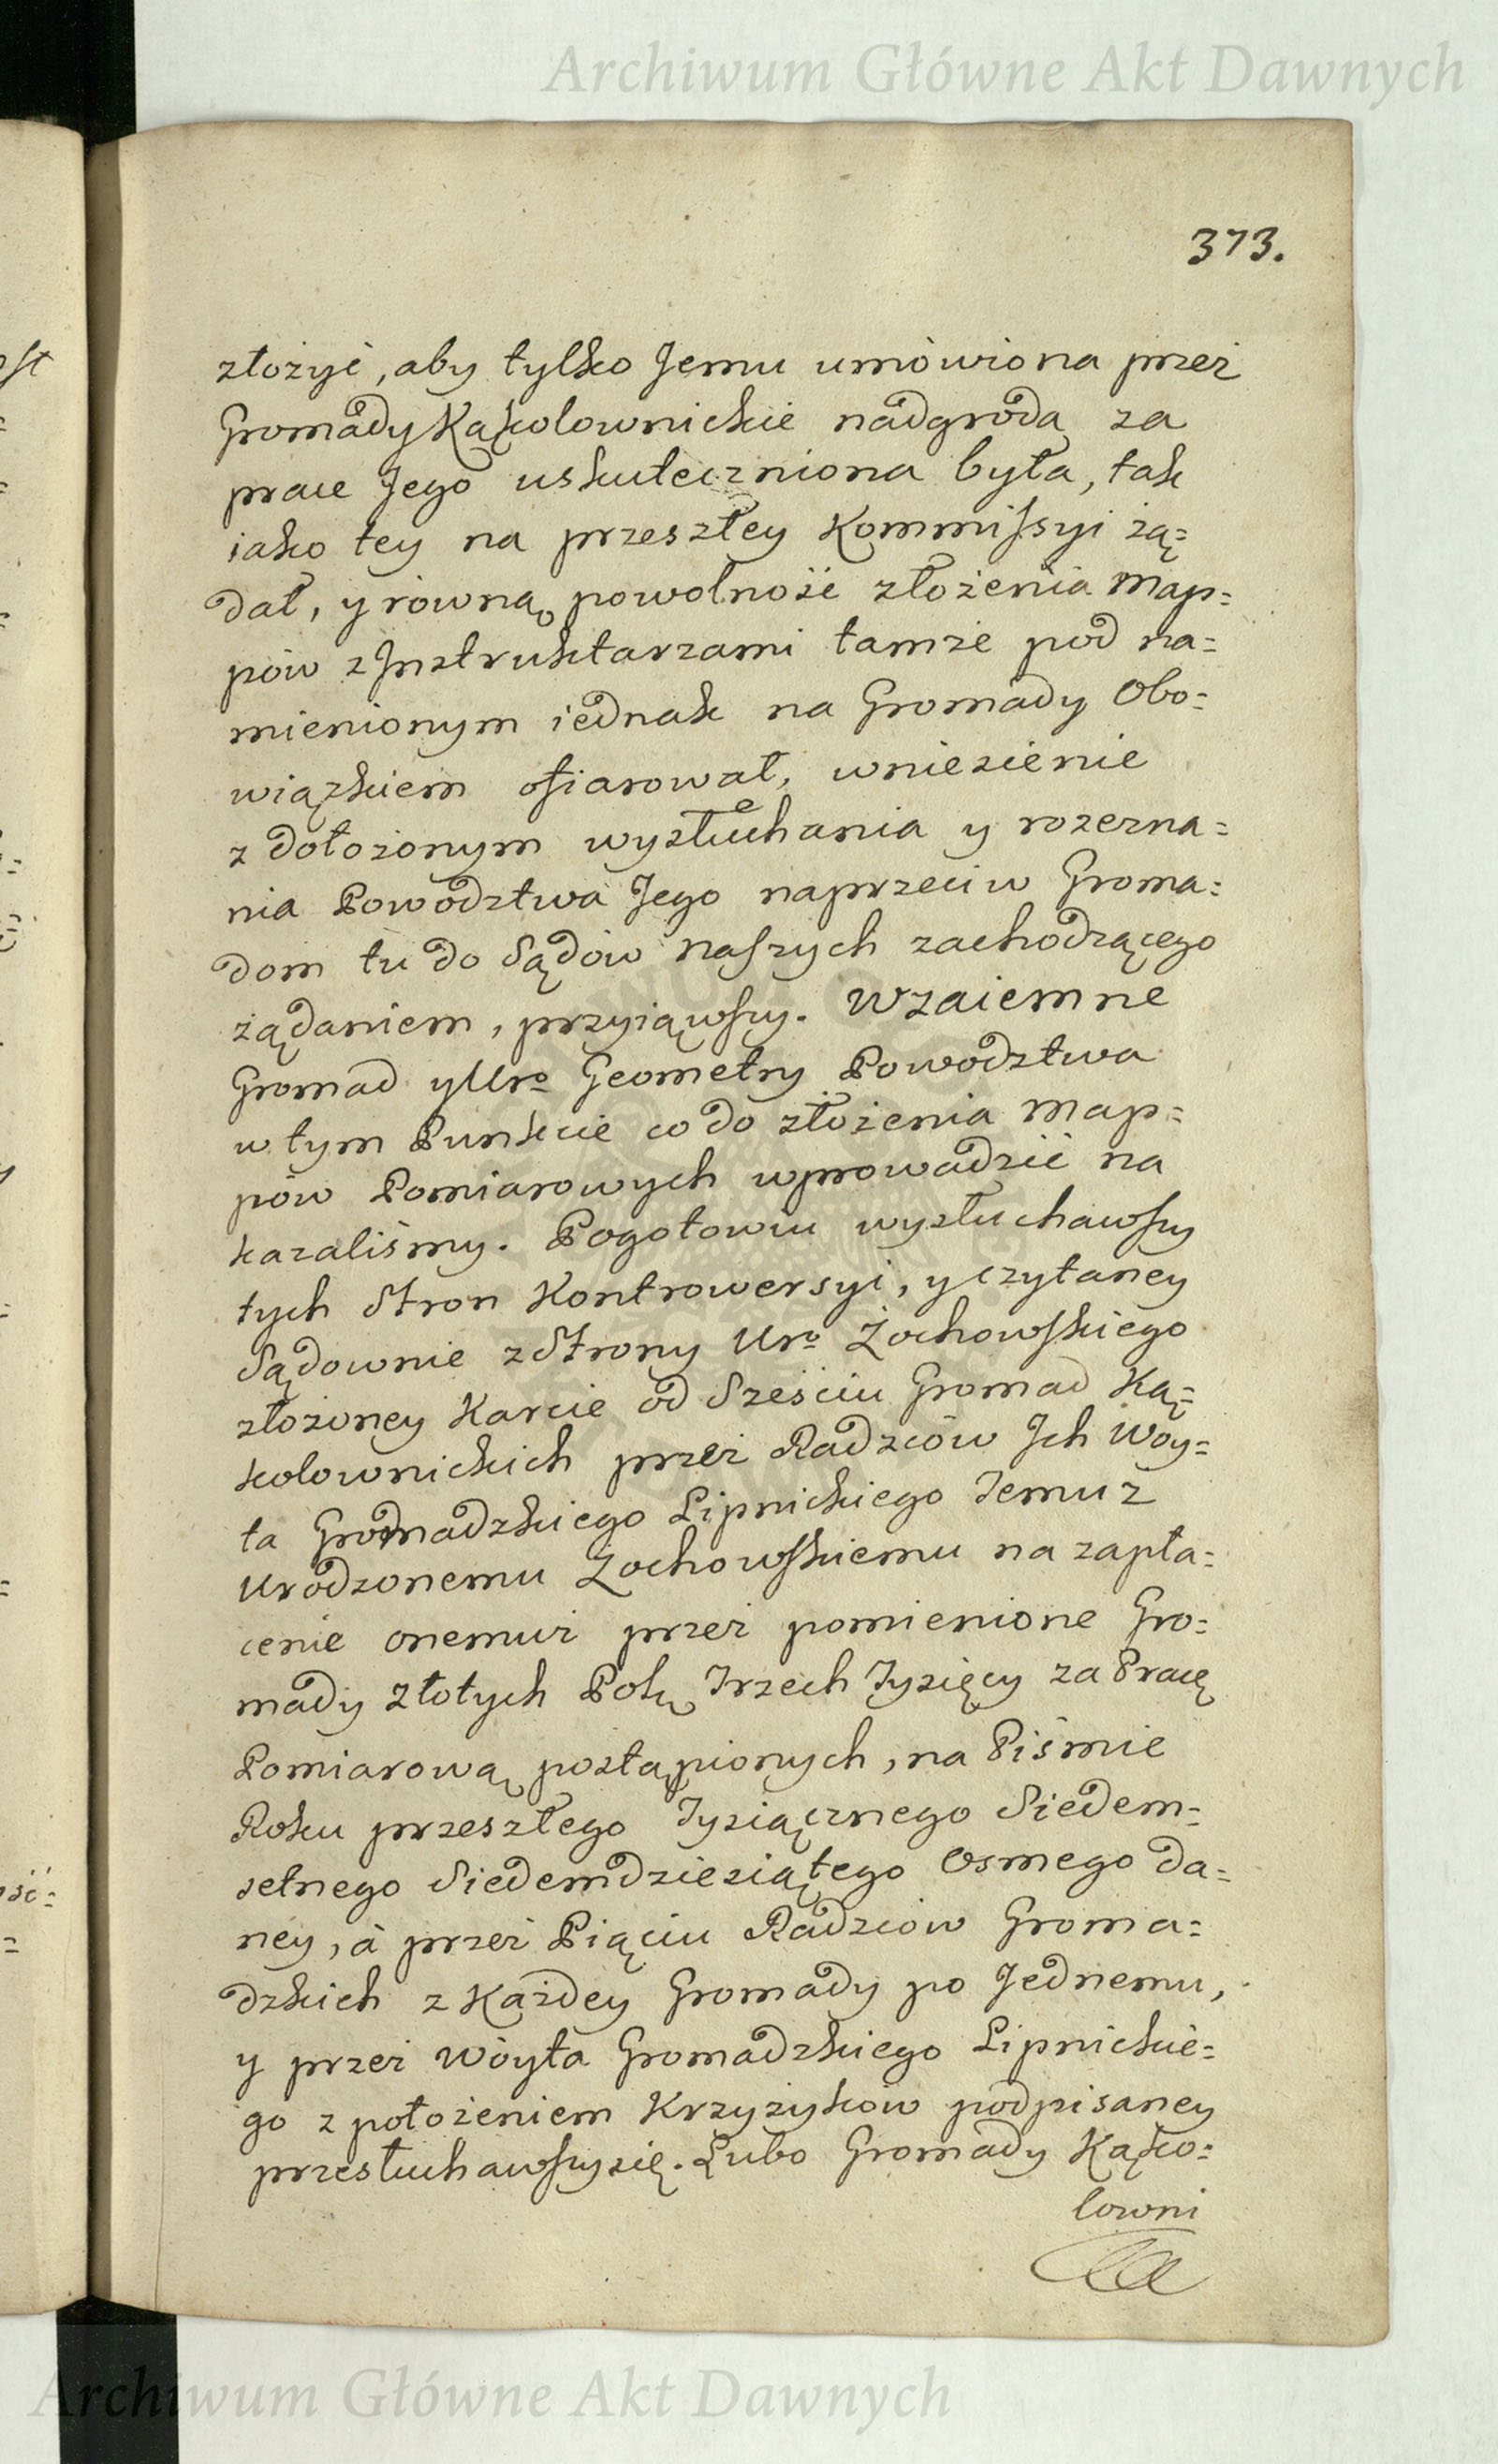 Archiwum Główne Akt Dawnych
373.
złożyć, aby tylko Jemu umówiona przez
Gromady Kąkolownickie nadgroda za
prace Jego uskuteczniona była, tak
iako tey na przeszłey Kommissyi żą=
dał, y równą powolność złożenia Map=
pów z Jnstruktarzami tamże pod na=
mienionym iednak na Gromady Obo=
wiązkiem ofiarował, wniesienie
z dołożonym wysłuchania y rozezna=
nia Powodztwa Jego naprzeciw Groma=
dom tu do Sądów naszych zachodzącego
żądaniem, przyiąwszy. Wzaiemne
Gromad y Uro Geometry Powodztwa
w tym Punkcie co do złożenia Map=
pów Pomiarowych wprowadzić na
kazaliśmy. Pogotowiu wysłuchawszy
tych Stron Kontrowersyi, y czytaney
Sądownie z Strony Uro Żochowskiego
złożoney Karcie od Sześciu Gromad Ką=
kolownickich przez Radzców Jch Woy=
ta Gromadzkiego Lipnickiego Jemuż
Urodzonemu Żochowskiemu na zapła=
cenie onemuż przez pomienione Gro=
mady Złotych Pols Trzech Tysięcy za Pracę
Pomiarową postąpionych, na Piśmie
Roku przeszłego Tysiącznego Siedem=
setnego Siedemdziesiątego Osmego da=
ney, à przez Piąciu Radzców Groma=
dzkich z Każdey Gromady po Jednemu,
y przez Woyta Gromadzkiego Lipnickie=
go z położeniem Krzyżyków podpisaney
przesłuchawszysię. Lubo Gromady Kąko=
lowni
Archiwum Główne Akt Dawnych